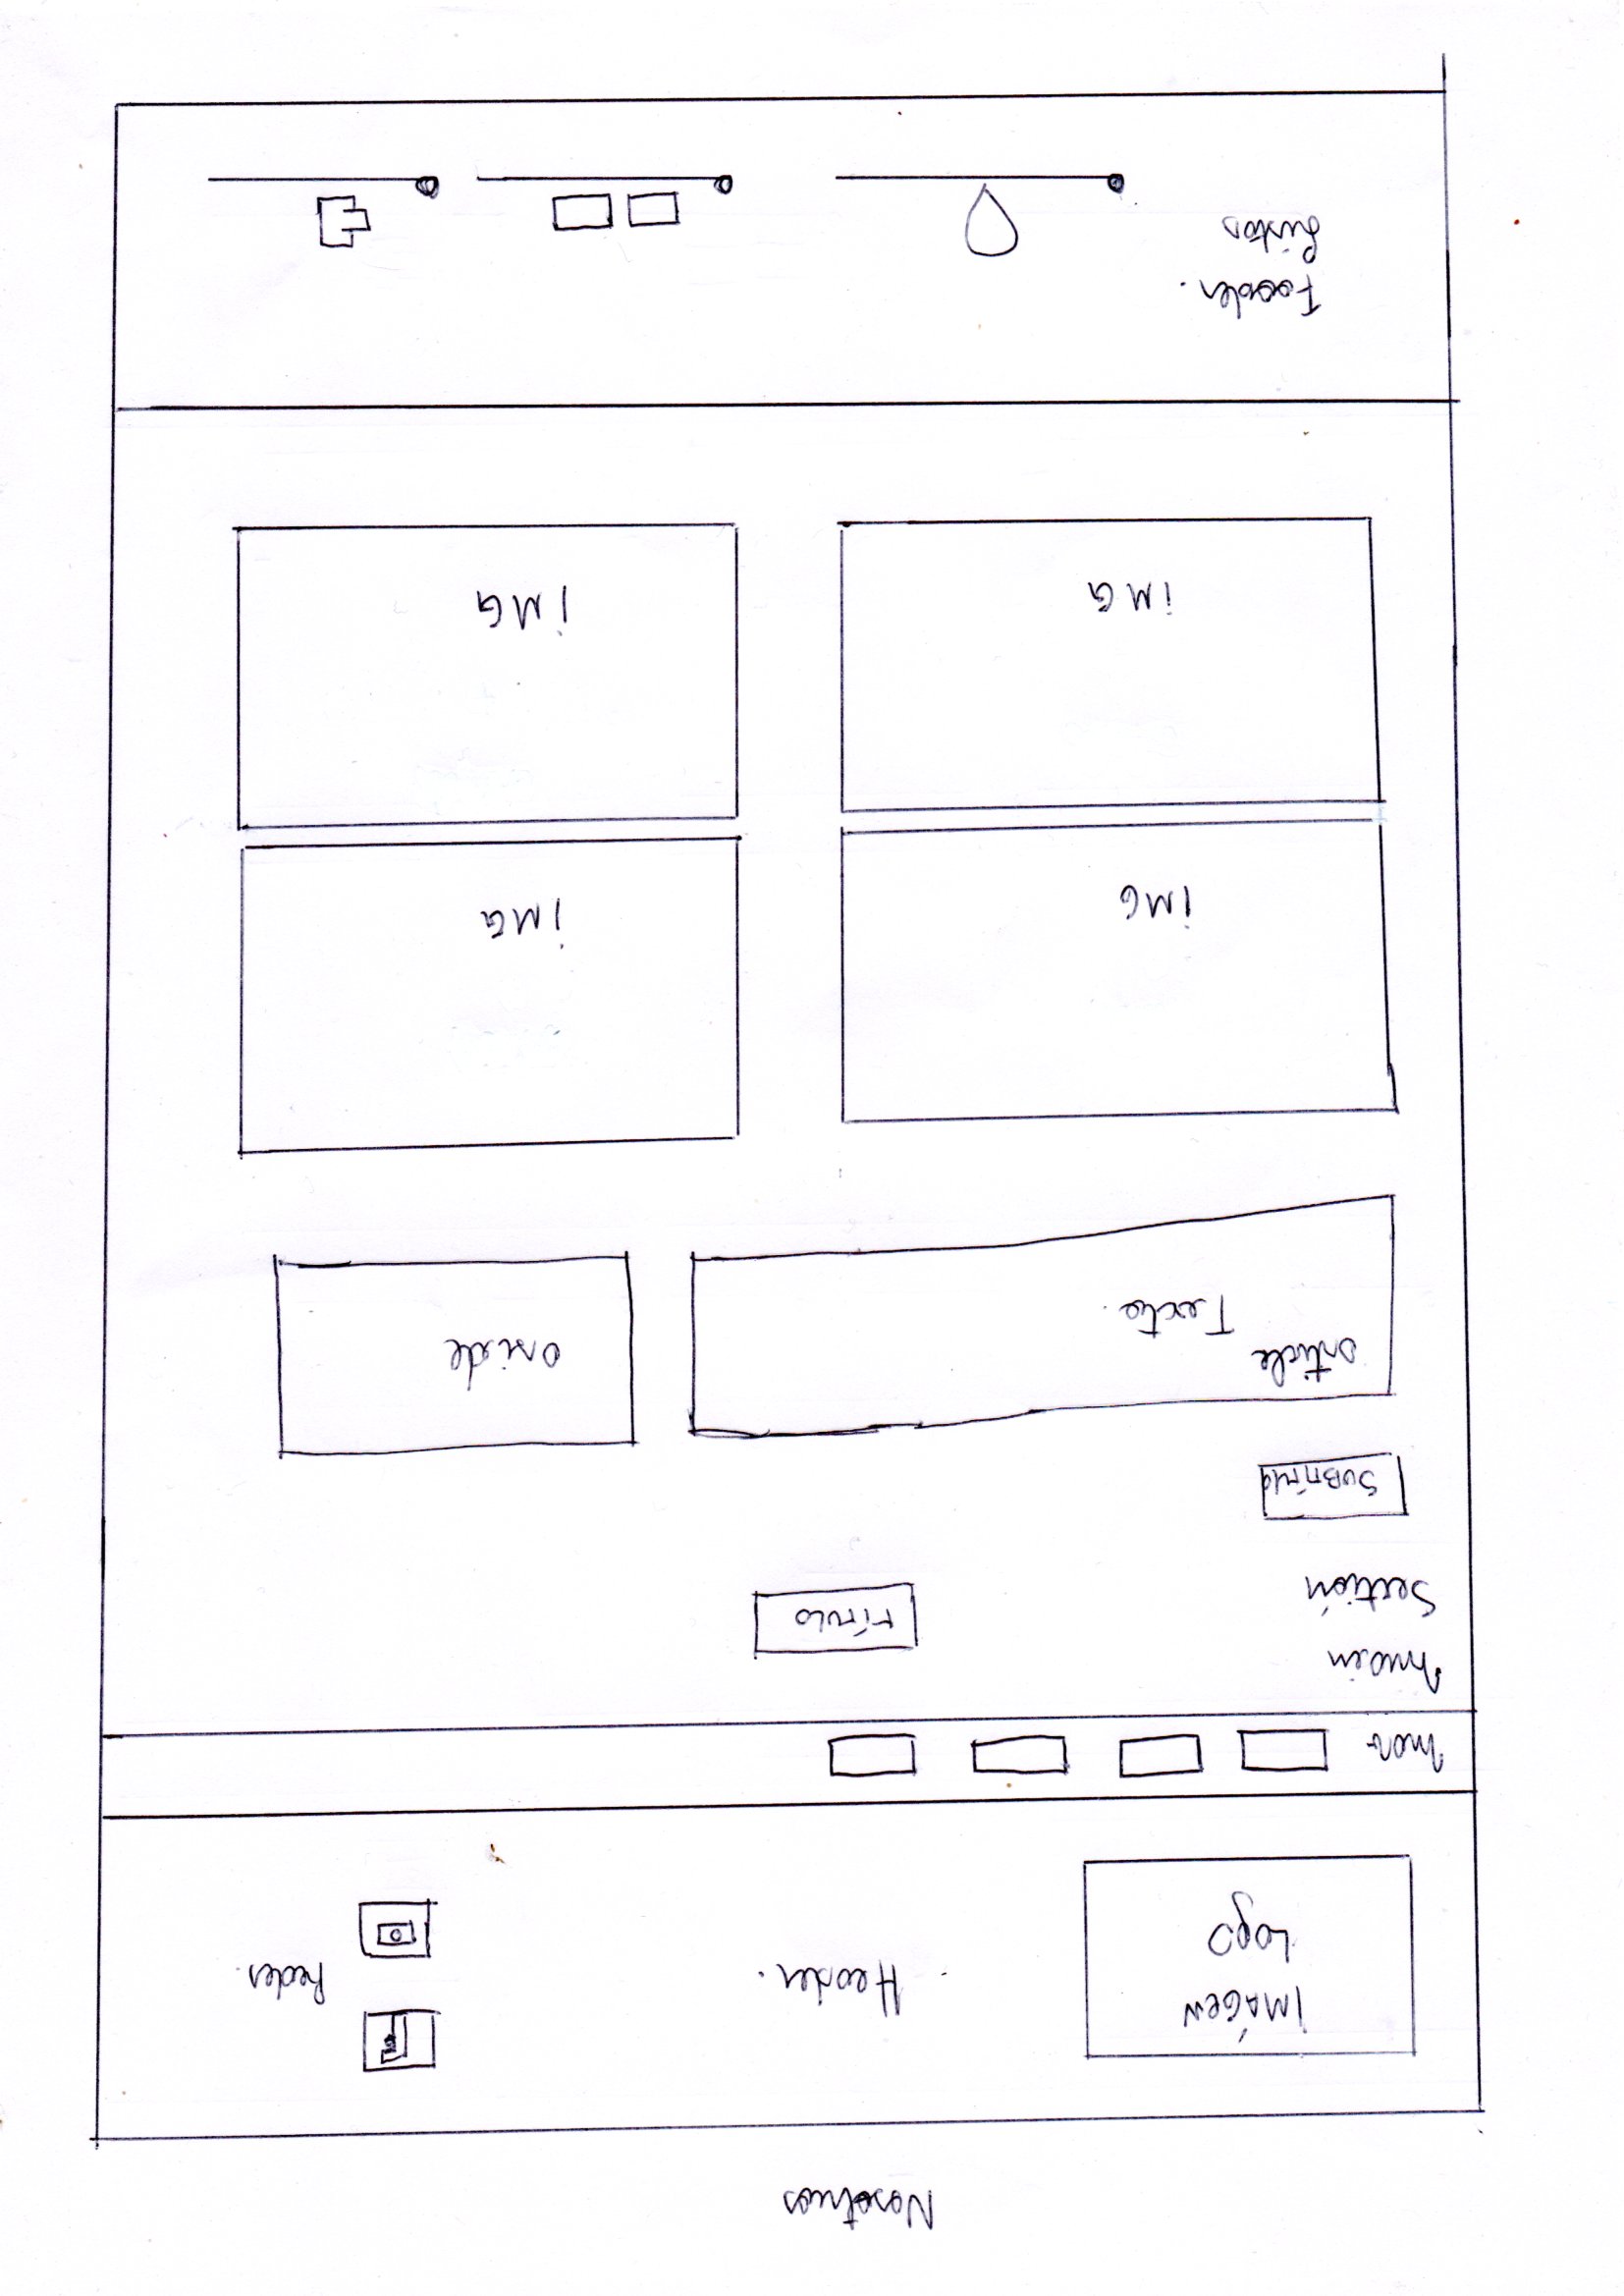 Nosotros
IMÁGEN
LOGO
Header.
F
Redes.
nav
main
Sectión
TÍTULO
SUBTÍTULO
article
Texto.
aside
iMG
iMG
iMG
iMG
Fooder.
Listas